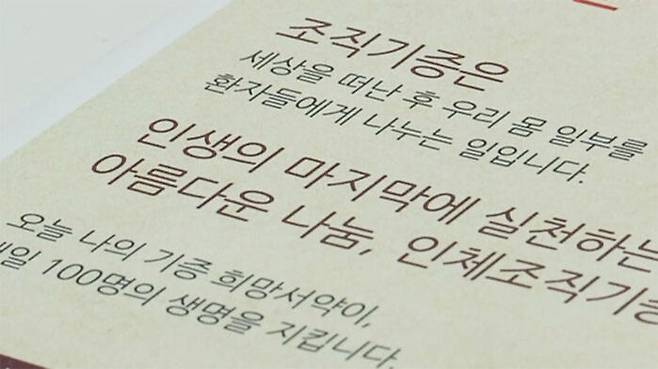 조직기증은
세상을 떠난 후 우리 몸 일부를
환자들에게 나누는 일입니다.
인생의 마지막에 실천하는
아름다운 나눔, 인체조직기증
오늘 나의 기증 희망서약이,
100명의 생명을 지킵니다.